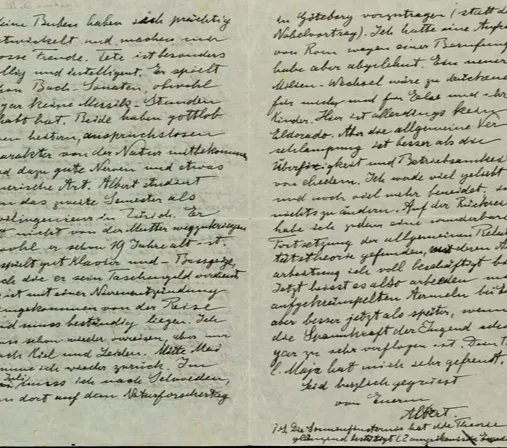 meine Buben haben sich prächtig
entwickelt und machen mir
grosse Freude. Tete ist besonders
und intelligent. Er spielt
schon Bach-Sonaten, obwohl
gar keine Musik-Stunden
gehabt hat. Beide haben gottlob
heitern, anspruchslosen
Charakter von der Natur mitbekommen
und dazu gute Nerven und etwas
Art. Albert studiert
das zweite Semester als
Zivilingenieur in Zürich. Er
nicht von der Mutter
obwohl er schon 19 Jahre alt ist.
spielt gut Klavier und
die er sein Taschengeld verdient
ist mit einer Nierenentzündung
angekommen von der Reise
und muss beständig liegen. Ich
schon wieder verreisen, aber nur
nach Kiel und Leiden. Mitte Mai
komme ich wieder zurück. Im
Juli muss ich nach Schweden,
um dort auf dem Naturforschertag
in Göteborg vorzutragen (statt
Nobelvortrag). Ich hatte eine Anfrage
von Rom wegen einer Berufung
habe aber abgelehnt. Ein neuer
Wechsel wäre zu drückend
für mich und für Else und ihre
Kinder. Hier ist allerdings kein
Eldorado. Aber die allgemeine Ver-
schlampung ist besser als die
Überfixigkeit und Betriebsamkeit
von ehedem. Ich werde viel geliebt
und noch viel mehr beneidet,
nichts zu ändern. Auf der Rückreise
habe ich jedoch eine wunderbare
Fortsetzung der allgemeinen Rela-
tivitätstheorie gefunden, mit deren
arbeitung ich voll beschäftigt bin
Jetzt heisst es also arbeiten mit
aufgekrempelten Ärmeln
aber besser jetzt als später, wenn
die Spannkraft der Jugend schon
gar zu sehr verflogen ist. Dein
l. Maja hat mich sehr gefreut.
Seid herzlich gegrüsst
von Euerm
Albert.
P.S. Die Sonnenfinsternis hat die Theorie
glänzend bestätigt (2 amerikanische